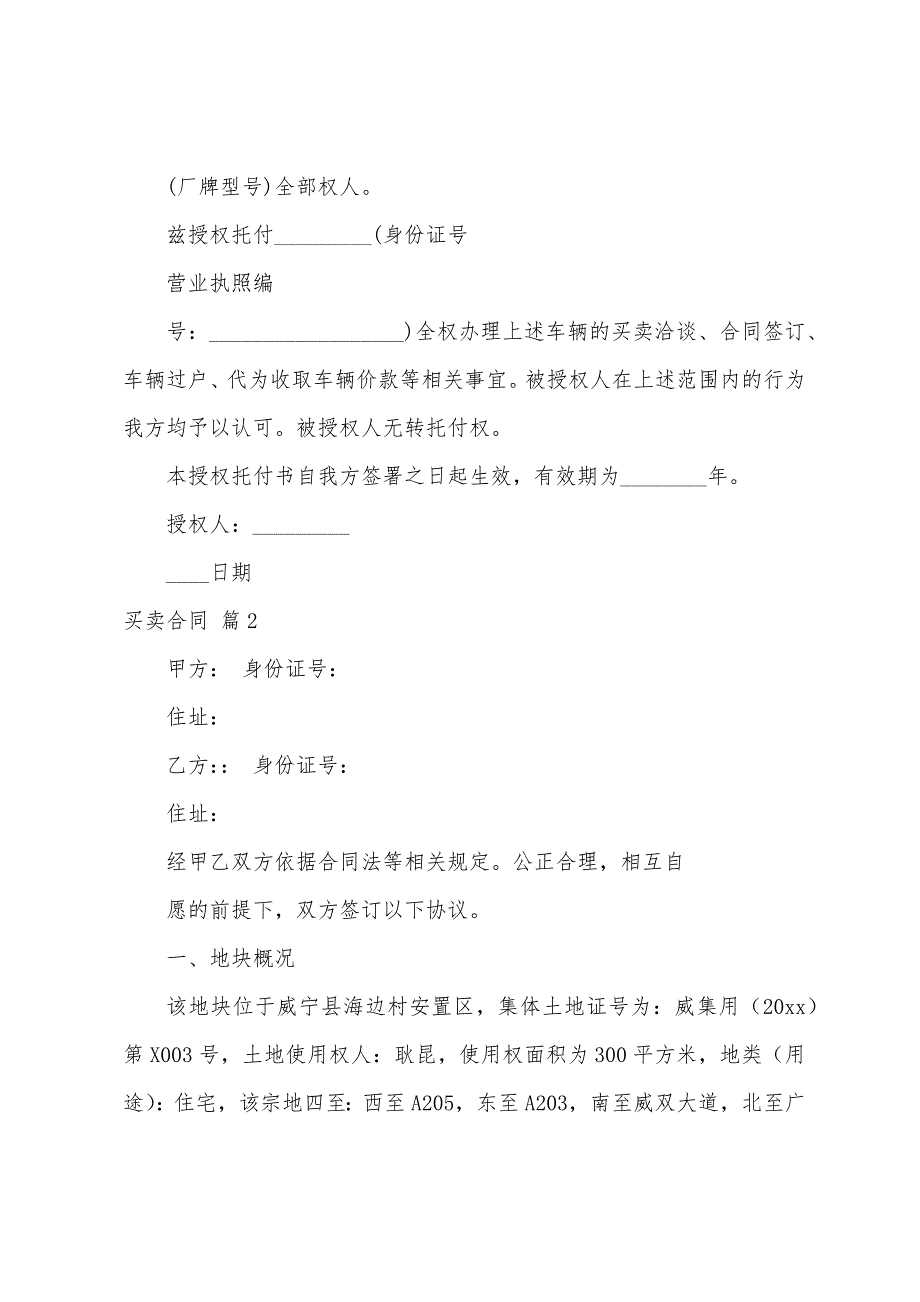 (厂牌型号)全部权人。
兹授权托付_________(身份证号
营业执照编
号:__________________)全权办理上述车辆的买卖洽谈、合同签订、
车辆过户、代为收取车辆价款等相关事宜。被授权人在上述范围内的行为
我方均予以认可。被授权人无转托付权。
本授权托付书自我方签署之日起生效，有效期为________年。
授权人：_________
____日期
买卖合同 篇2
甲方： 身份证号：
住址：
乙方：： 身份证号：
住址：
经甲乙双方依据合同法等相关规定。公正合理，相互自
愿的前提下，双方签订以下协议。
一、地块概况
该地块位于威宁县海边村安置区，集体土地证号为：威集用（20xx）
第X003号，土地使用权人：耿昆，使用权面积为300平方米，地类（用
途）：住宅，该宗地四至：西至A205，东至A203，南至威双大道，北至广